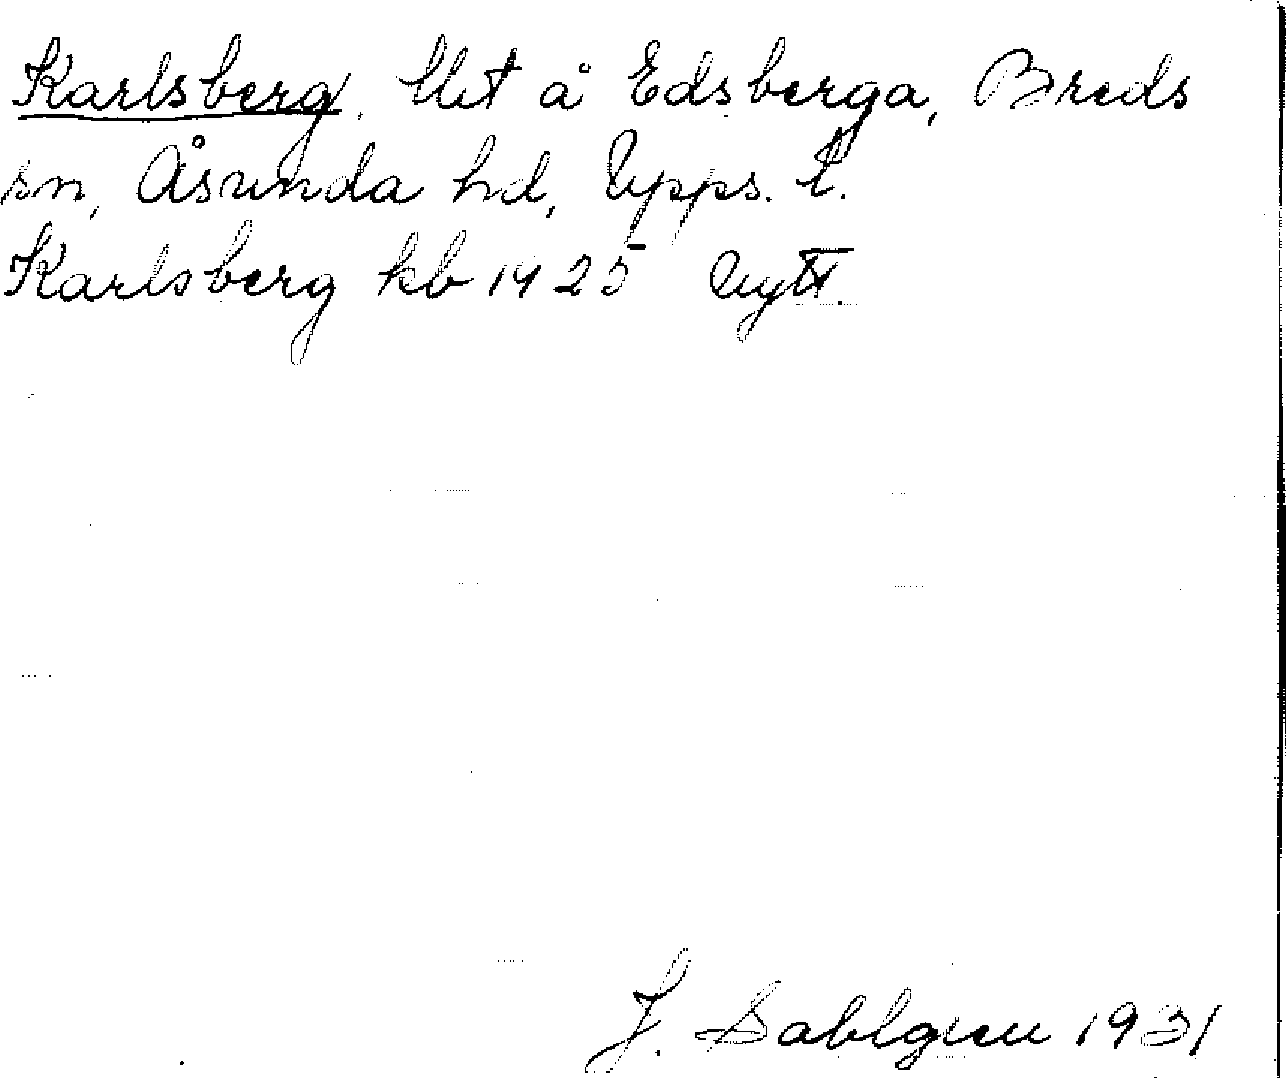 Karlsberg, lht å Edsberga, Breds
sn, Åsunda hd, Upps. l.
Karlsberg kb 1925 Utg.
J. Sahlgren 1931